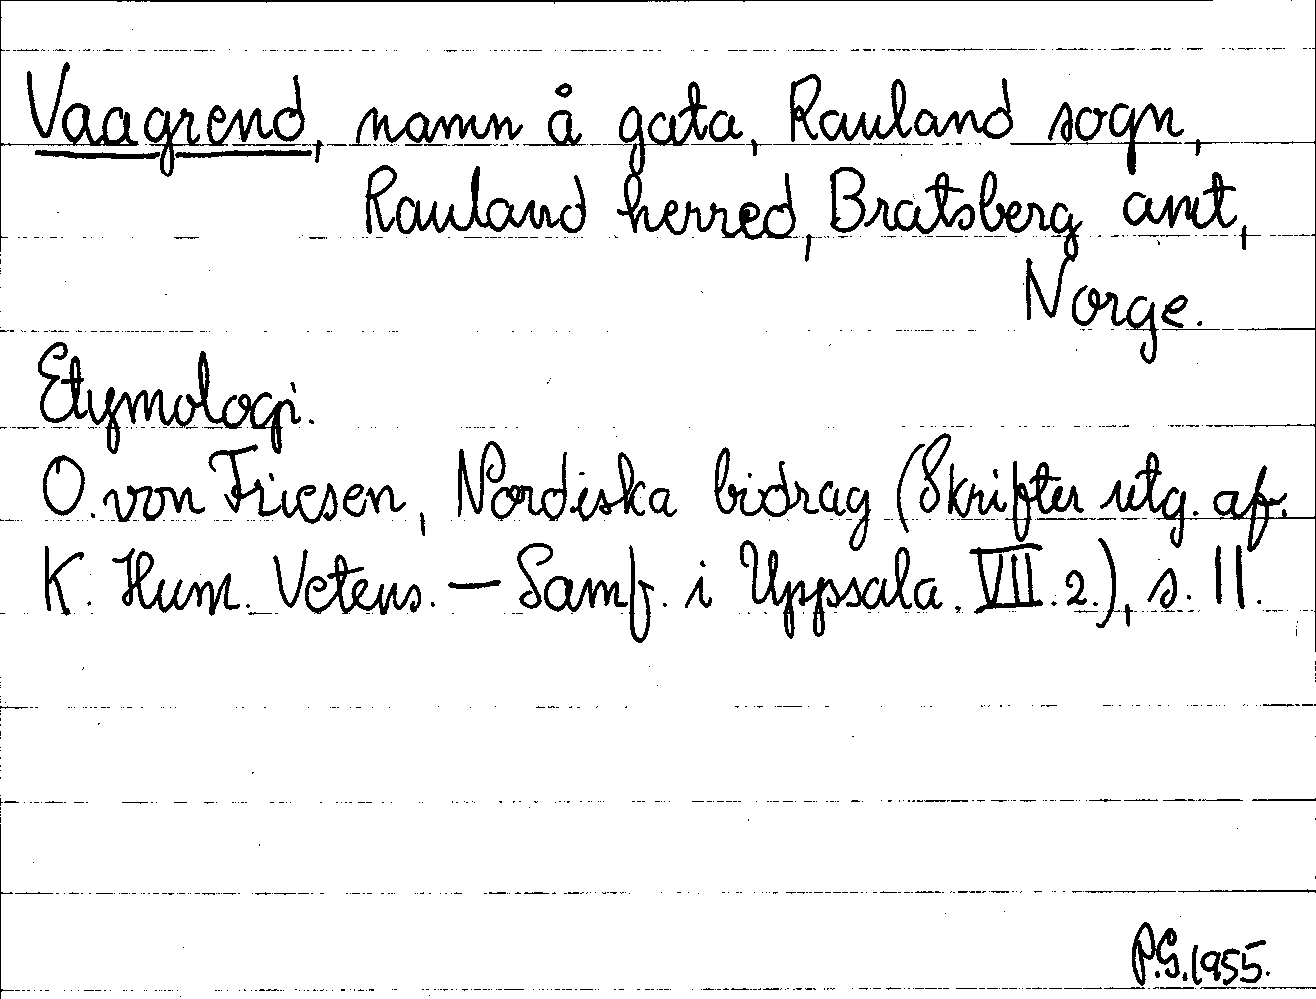 Vaagrend, namn å gata, Rauland sogn,
Rauland herred, Bratsberg amt,
Norge.
Etymologi.
O. von Friesen, Nordiska bidrag (Skrifter utg. af.
K. Hum. Vetens. – Samf. i Uppsala. VII. 2.), s. 11.
P.G. 1955.